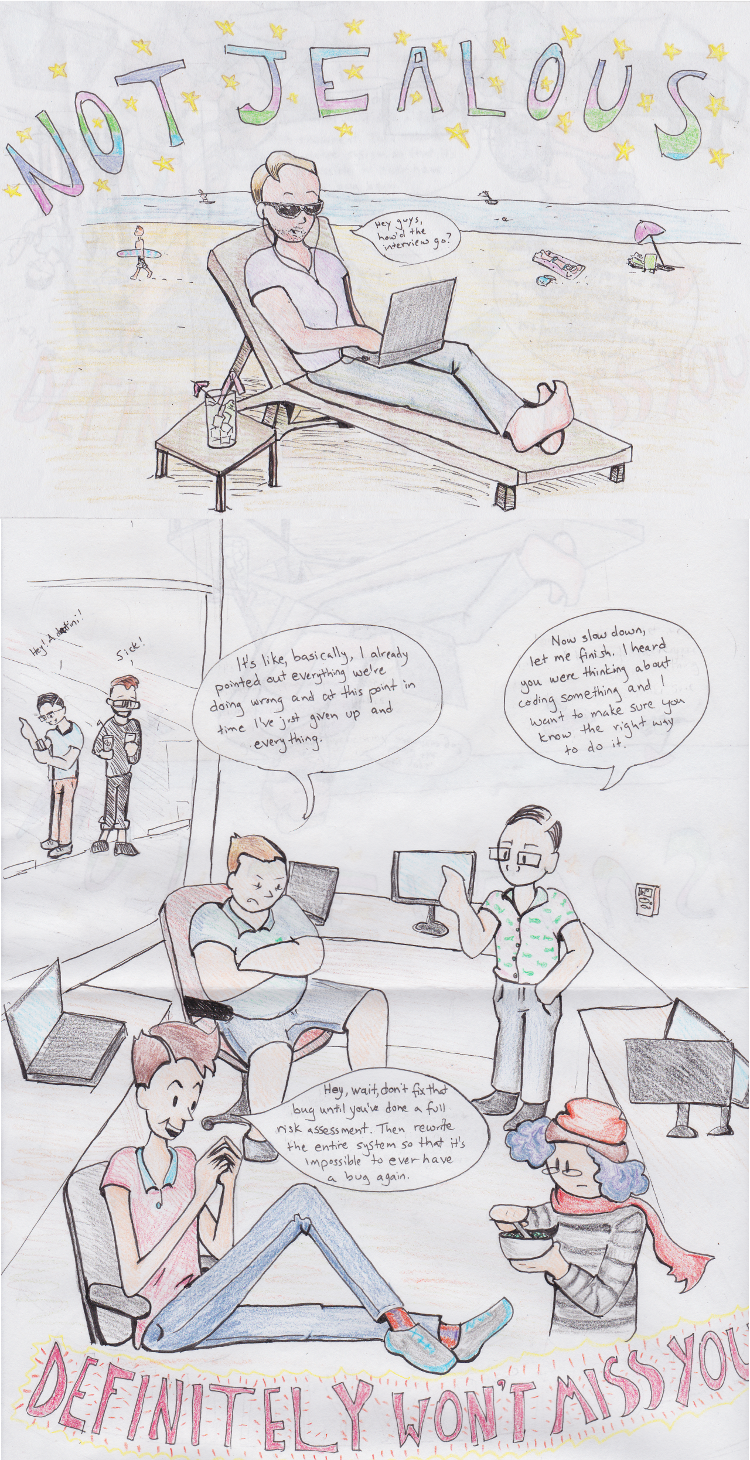 NOT JEALOUS
Hey guys,
how'd the
interview go?
Hey! A
Sick!
It's like, basically, I already
pointed out everything we're
doing wrong and at this point in
time I've just given up and
everything.
Now slow down,
let me finish. I heard
you were thinking about
coding something and I
want to make sure you
know the right way
to do it.
Hey, wait, don't fix that
bug until you've done a full
risk assessment. Then rewrite
the entire system so that it's
impossible to ever have
a bug again.
DEFINITELY WON'T MISS YOU